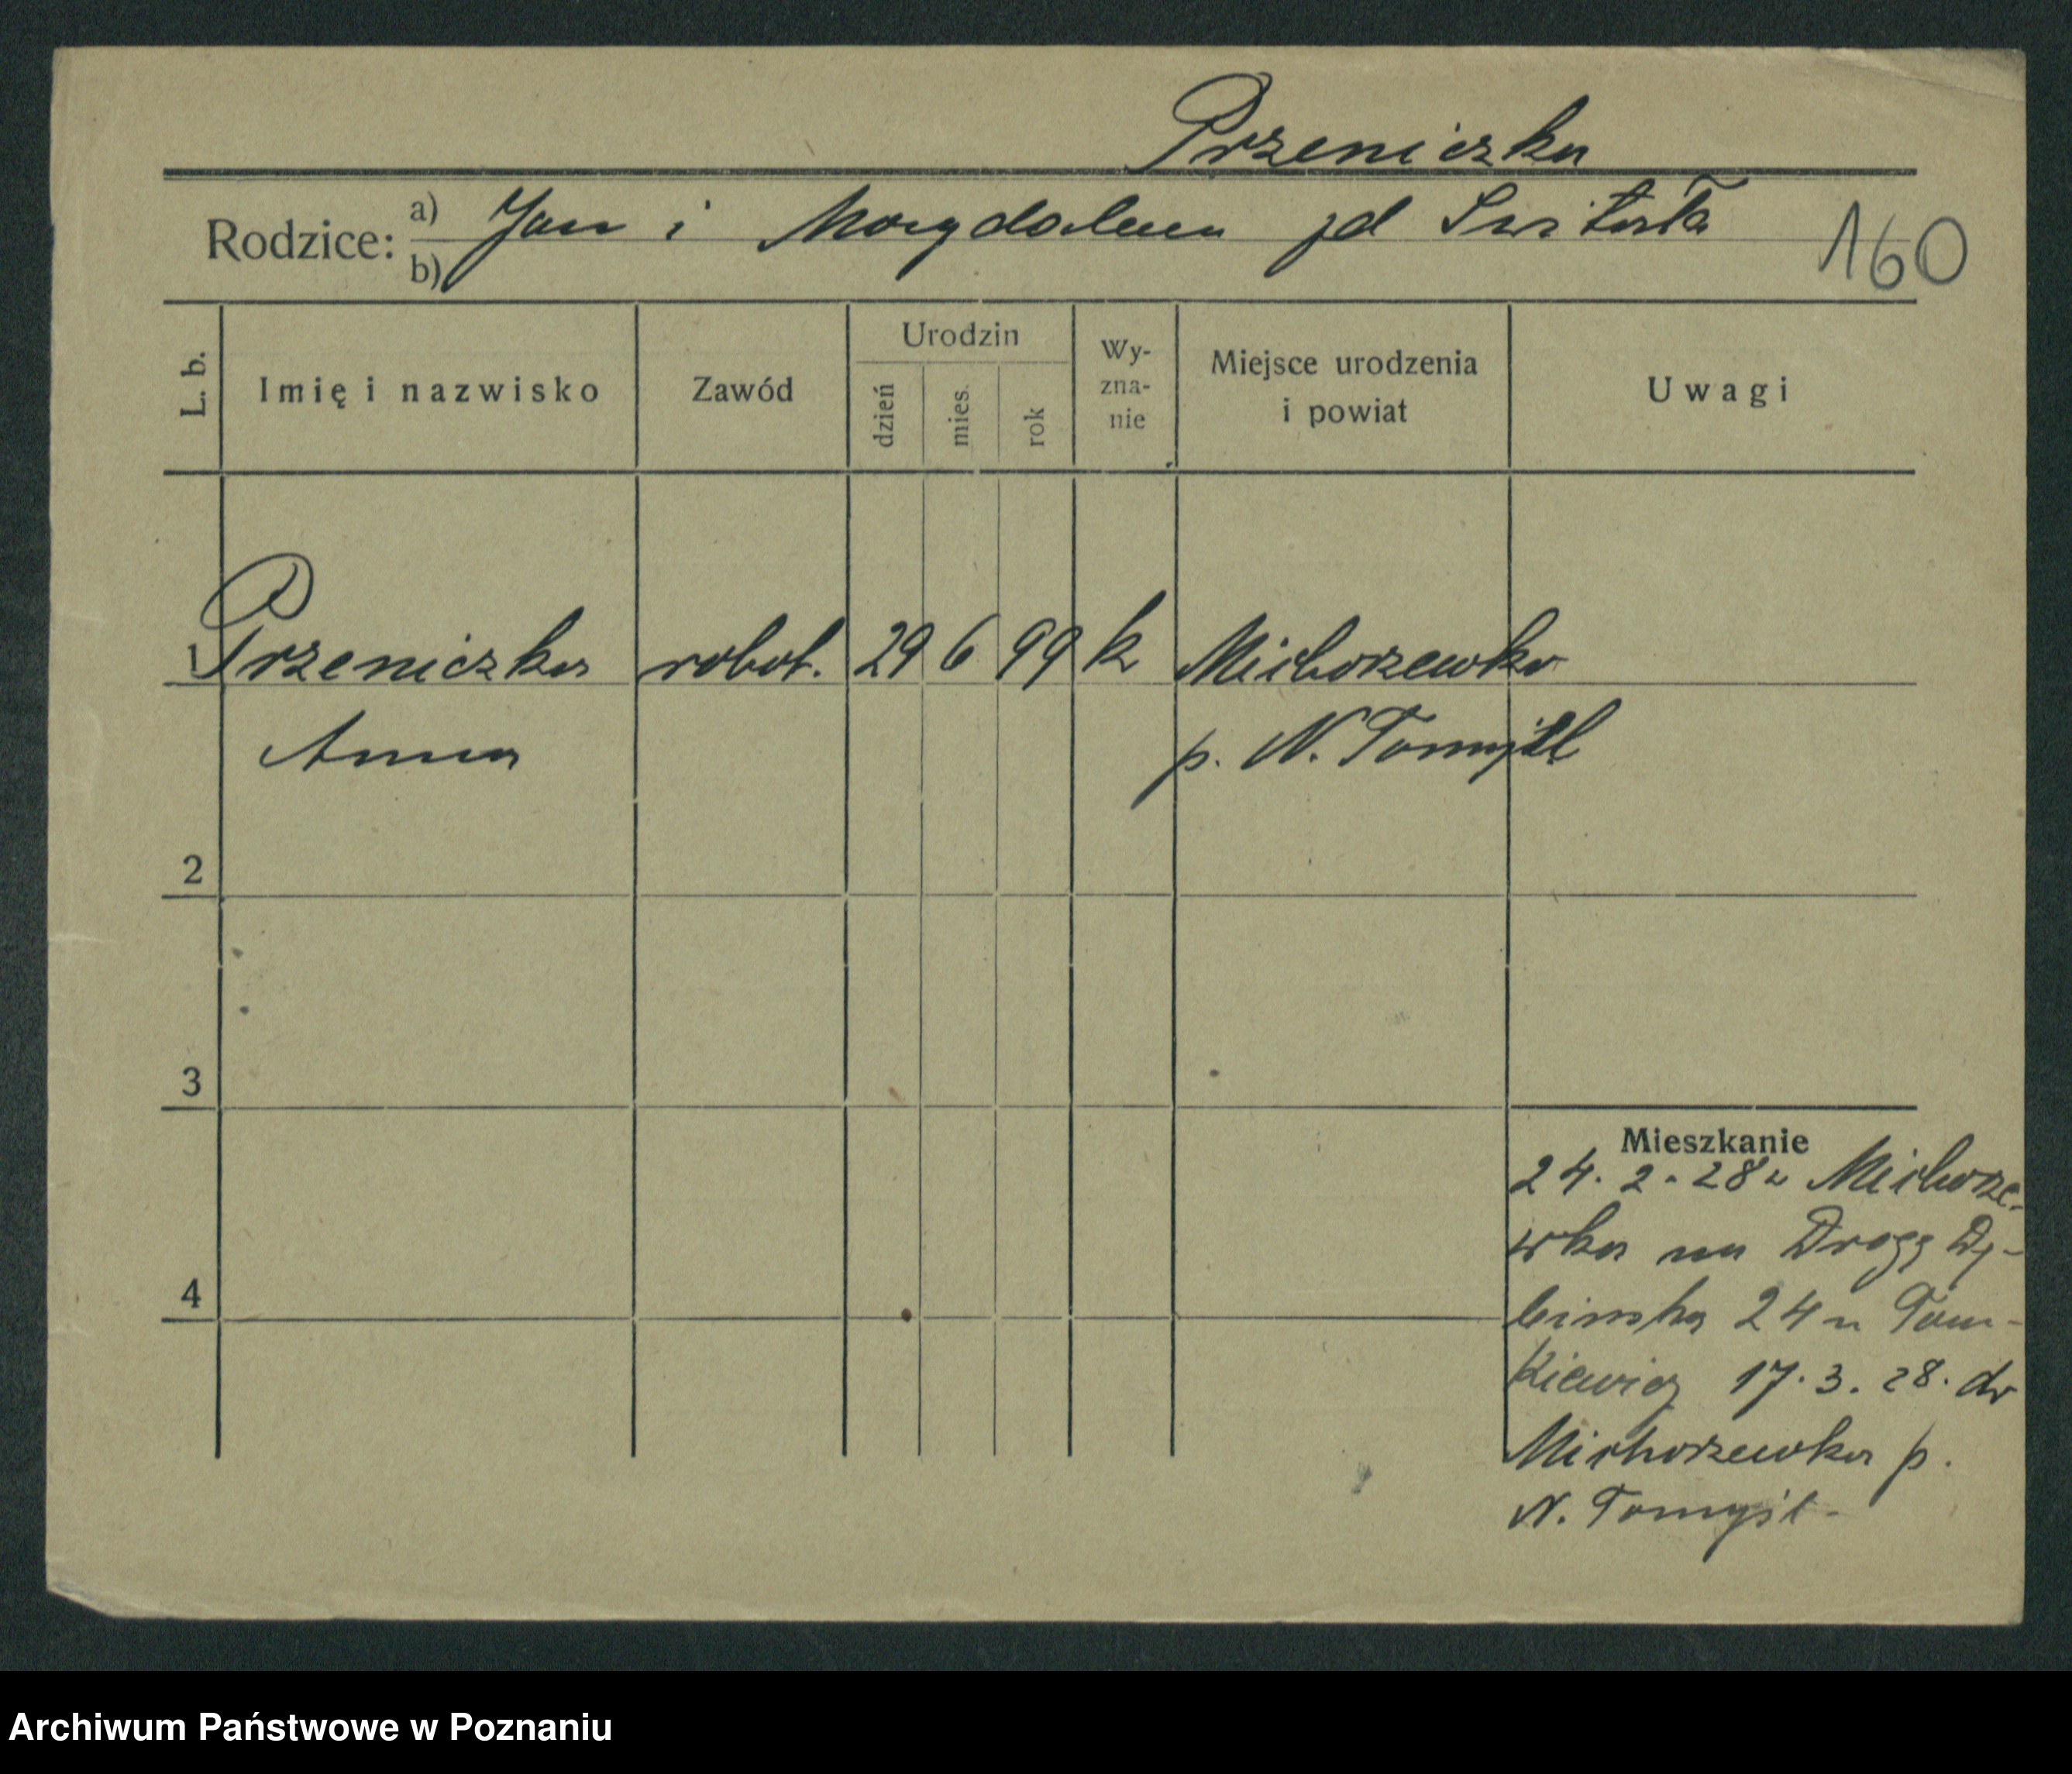 Przeniczka
Rodzice: a) Jan i Magdalena zd Switała
b)
160
L. b. Imię i nazwisko Zawód Urodzin dzień mies. rok Wy-zna-nie Miejsce urodzenia i powiat Uwagi
1 Przeniczka robot. 29 6 99 k Michorzewko
Anna p. N. Tomyśl
2
3
4
Mieszkanie
24. 2. 28 z Michorze-
wka na Drogę Dę-
bińską 24 u Tom-
kiewicz 17. 3. 28. do
Michorzewka p.
N. Tomyśl
Archiwum Państwowe w Poznaniu